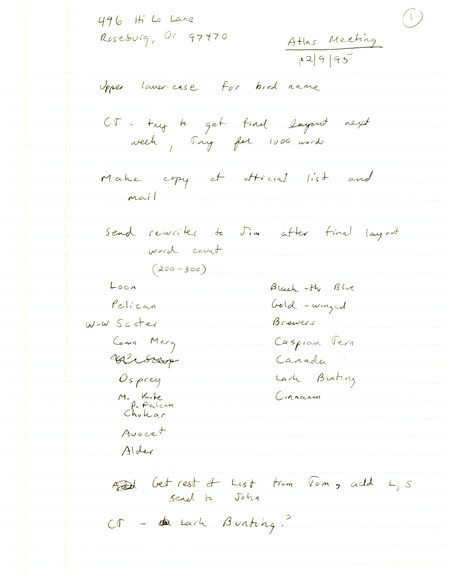 1
496 Hi Lo Lane
Roseburg, Or 97470
Atlas Meeting
12/9/95
Upper lower-case for bird name
CT - try to get final layout next
week, Try for 1000 words
Make copy of official list and
mail
Send rewrites to Jim after final layout
word count
(200-300)
Loon
Pelican
W-W Scoter
Comm Merg
Osprey
M. Kite
P. Falcon
Chukar
Avocet
Alder
Black-thr Blue
Gold-winged
Brewers
Caspian Tern
Canada
Lark Bunting
Cinnamon
Get rest of List from Tom, add L, S
send to John
CT - Lark Bunting?